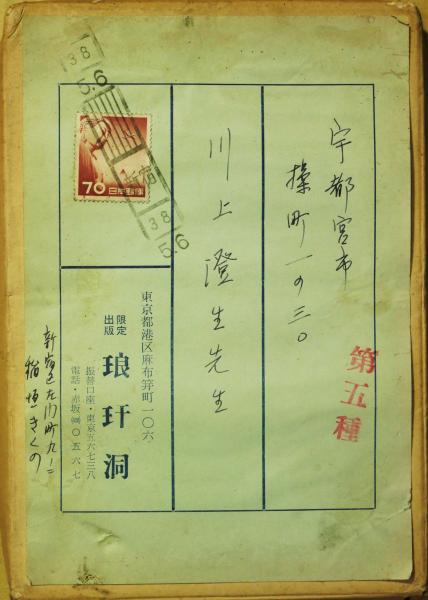 宇都宮市
操町一の三〇
第五種
川上澄生先生
38
5.6
70 日本郵便
38
5.6
東京都港区麻布笄町一〇六
限定
出版
琅玕洞
振替口座・東京五六七三八
電話・赤坂㊽〇五六七
新宿区左門町九ノ二
稲垣きくの